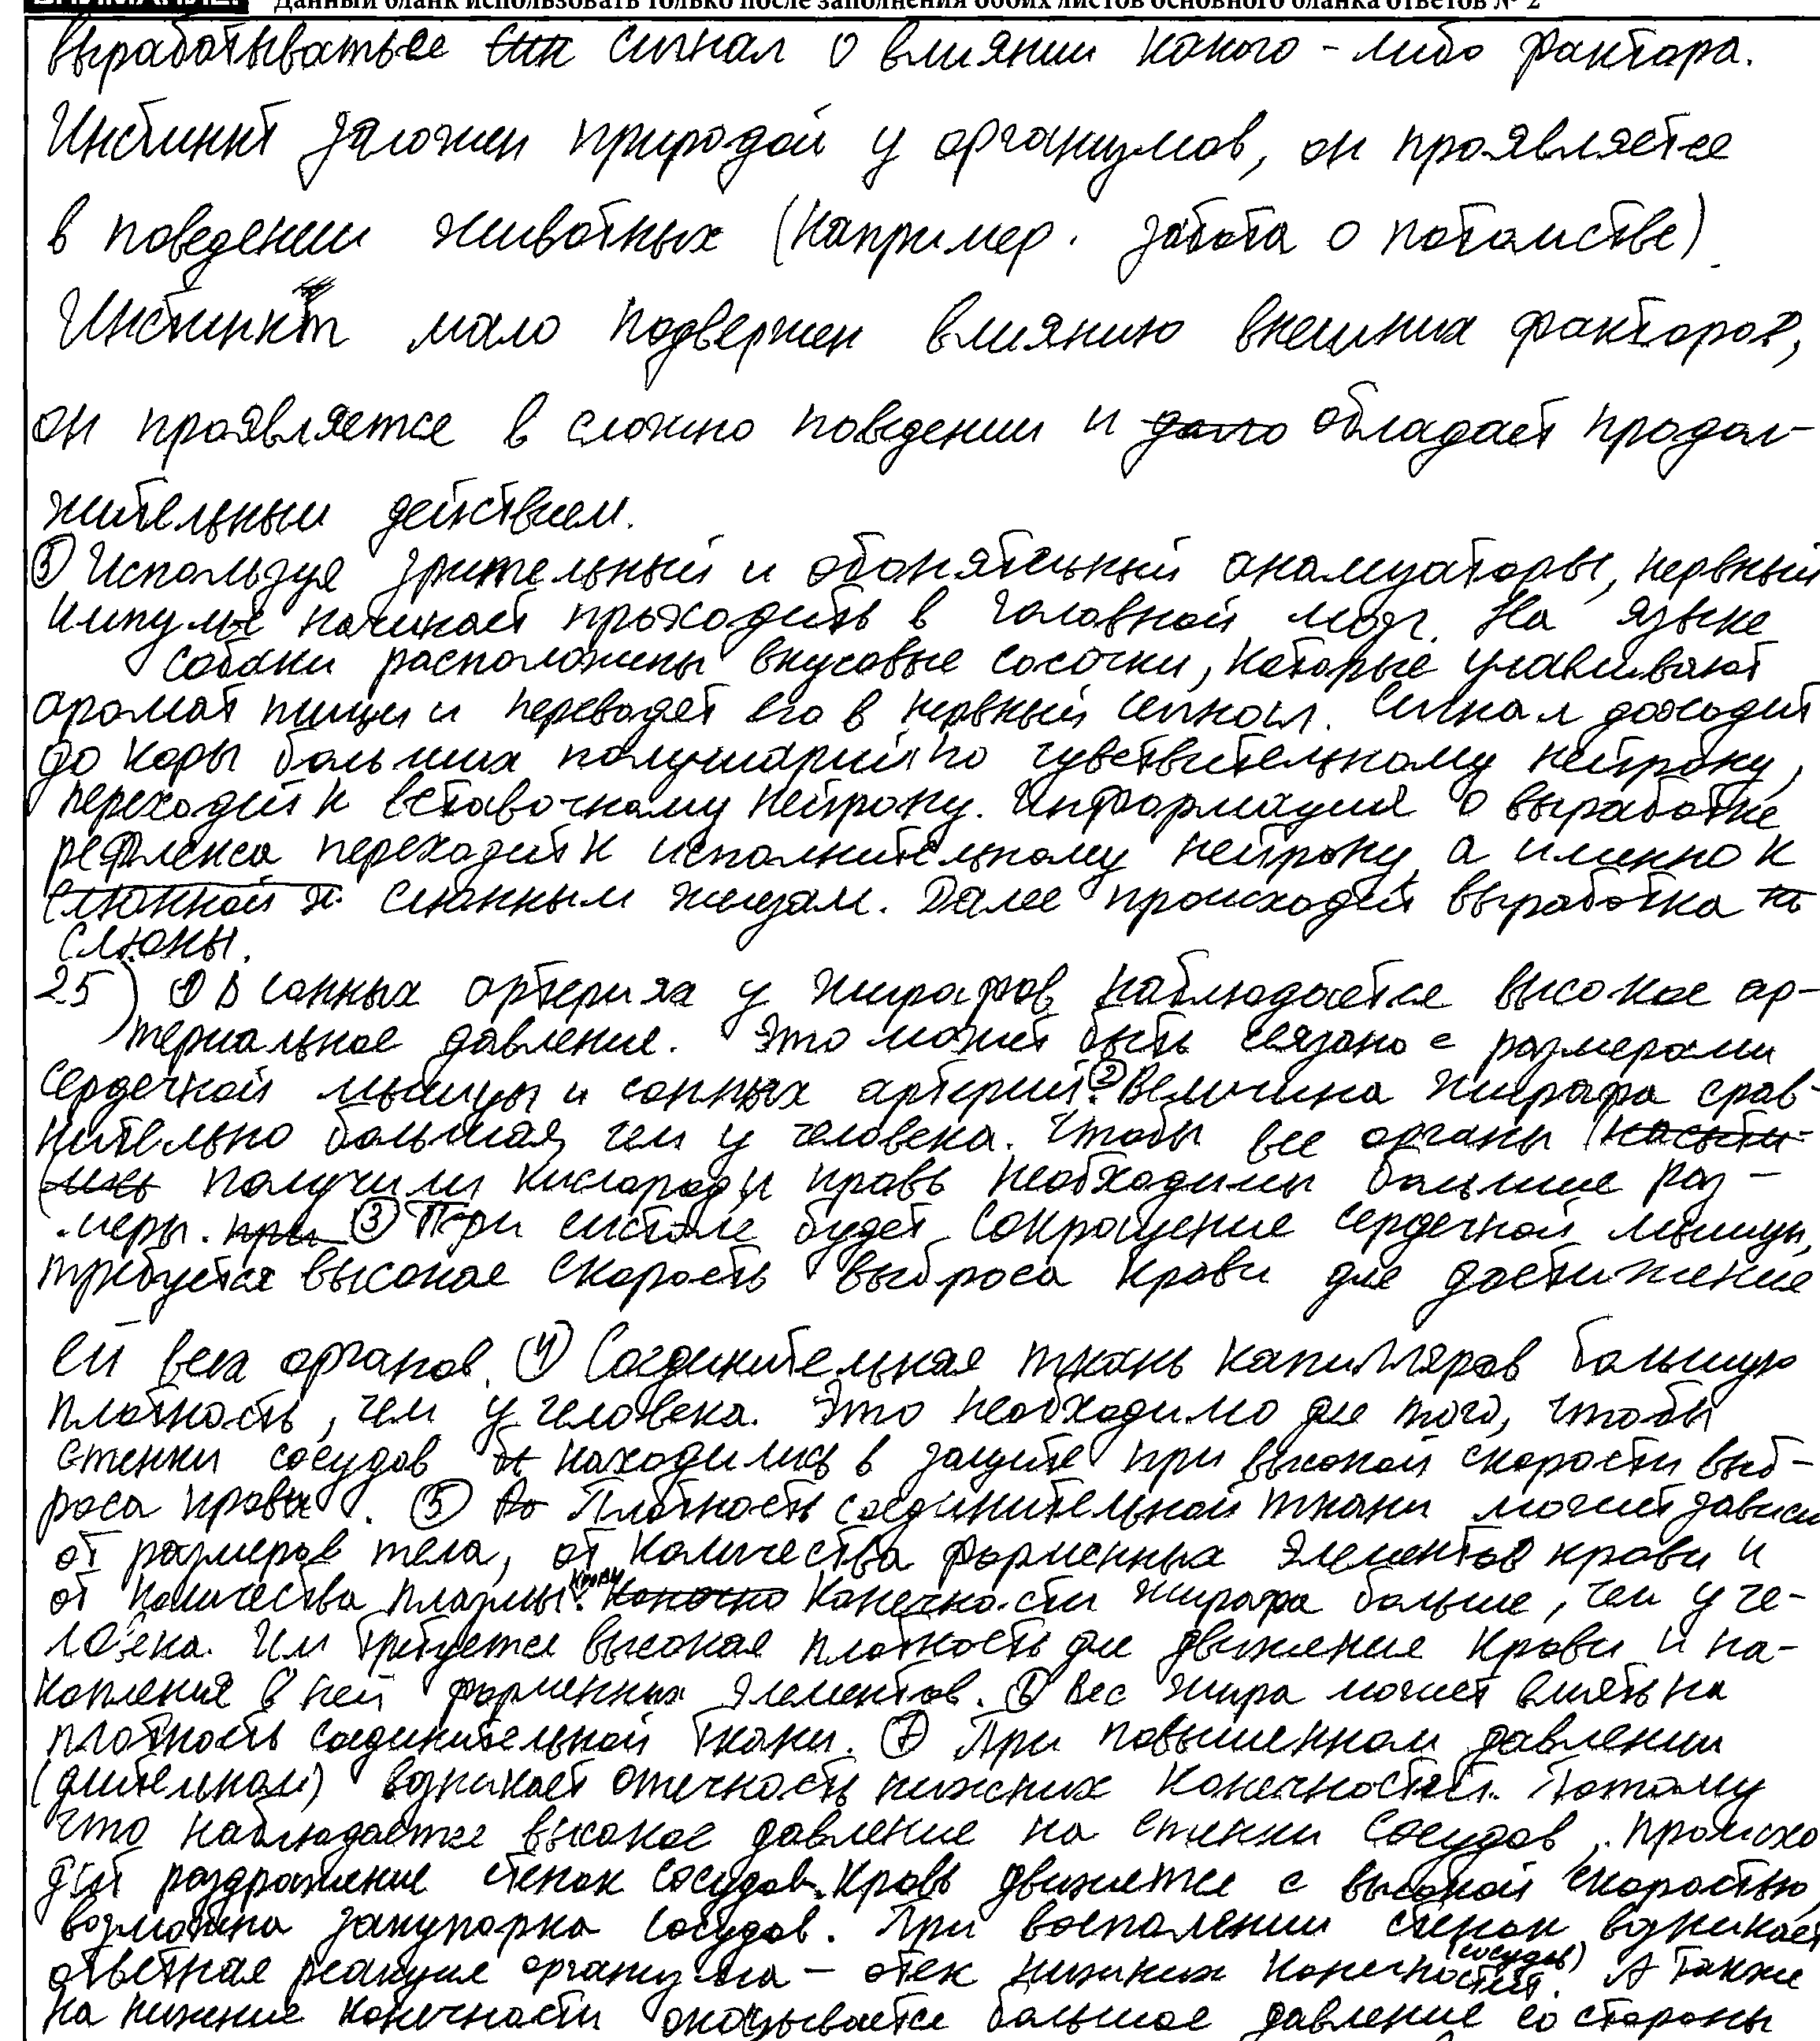 Данный бланк использовать только после заполнения обоих листов основного бланка ответов № 2
вырабатываться сигнал о влиянии какого-либо фактора.
Инстинкт заложен природой у организмов, он проявляется
в поведении животных (Например. забота о потомстве).
Инстинкт мало подвержен влиянию внешних факторов,
он проявляется в сложно поведении и обладает продол-
жительным действием.
⑤ Используя зрительный и обонятельный анализаторы, нервный
импульс начинает проходить в головной мозг. На языке
собаки расположены вкусовые сосочки, которые улавливают
аромат пищи и переводят его в нервный сигнал. Сигнал доходит
до коры больших полушарий по чувствительному нейрону,
переходит к вставочному нейрону. Информация о выработке
рефлекса переходит к исполнительному нейрону, а именно к
слюнной ж. слюнным железам. Далее происходит выработка
слюны.
25) ① В сонных артериях у жирафов наблюдается высокое ар-
териальное давление. Это может быть связано с размерами
сердечной мышцы и сонных артерий. ② Величина жирафа срав-
нительно большая, чем у человека. Чтобы все органы
получили кислород и кровь необходимы большие раз-
меры. при ③ При систоле будет сокращение сердечной мышцы,
требуется высокая скорость выброса крови для достижения
ей всех органов. ④ Соединительная ткань капилляров большую
плотность, чем у человека. Это необходимо для того, чтобы
стенки сосудов находились в защите при высокой скорости выб-
роса крови. ⑤ Плотность соединительной ткани может зависи
от размеров тела, от количества форменных элементов крови и
от количества плазмы крови. Конечности жирафа больше, чем у че-
ловека. Им требуется высокая плотность для движения крови и на-
копления в ней форменных элементов. ⑥ Вес жира может влиять на
плотность соединительной ткани. ⑦ При повышенном давлении
(длительном) возникает отечность нижних конечностей. Потому
что наблюдается высокое давление на стенки сосудов, происхо
дит раздражение стенок сосудов. Кровь движется с высокой скоростью,
возможна закупорка сосудов. При воспалении стенок (сосудов) возникает
ответная реакция организма – отек нижних конечностей. А также
на нижние конечности оказывается большое давление со стороны